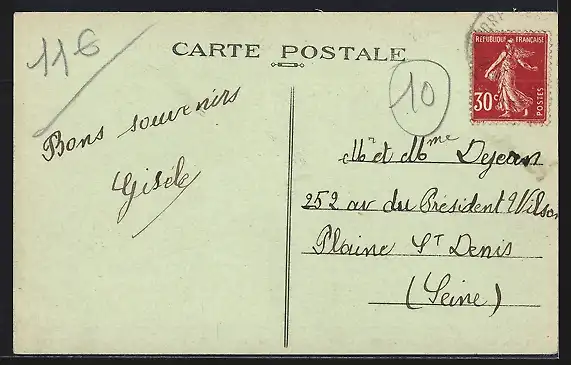 11€
CARTE POSTALE
REPUBLIQUE FRANÇAISE
30c
POSTES
10
Bons souvenirs
Gisèle
Mr et Mme Dejean
252 av du Président Wilson
Plaine St Denis
(Seine)